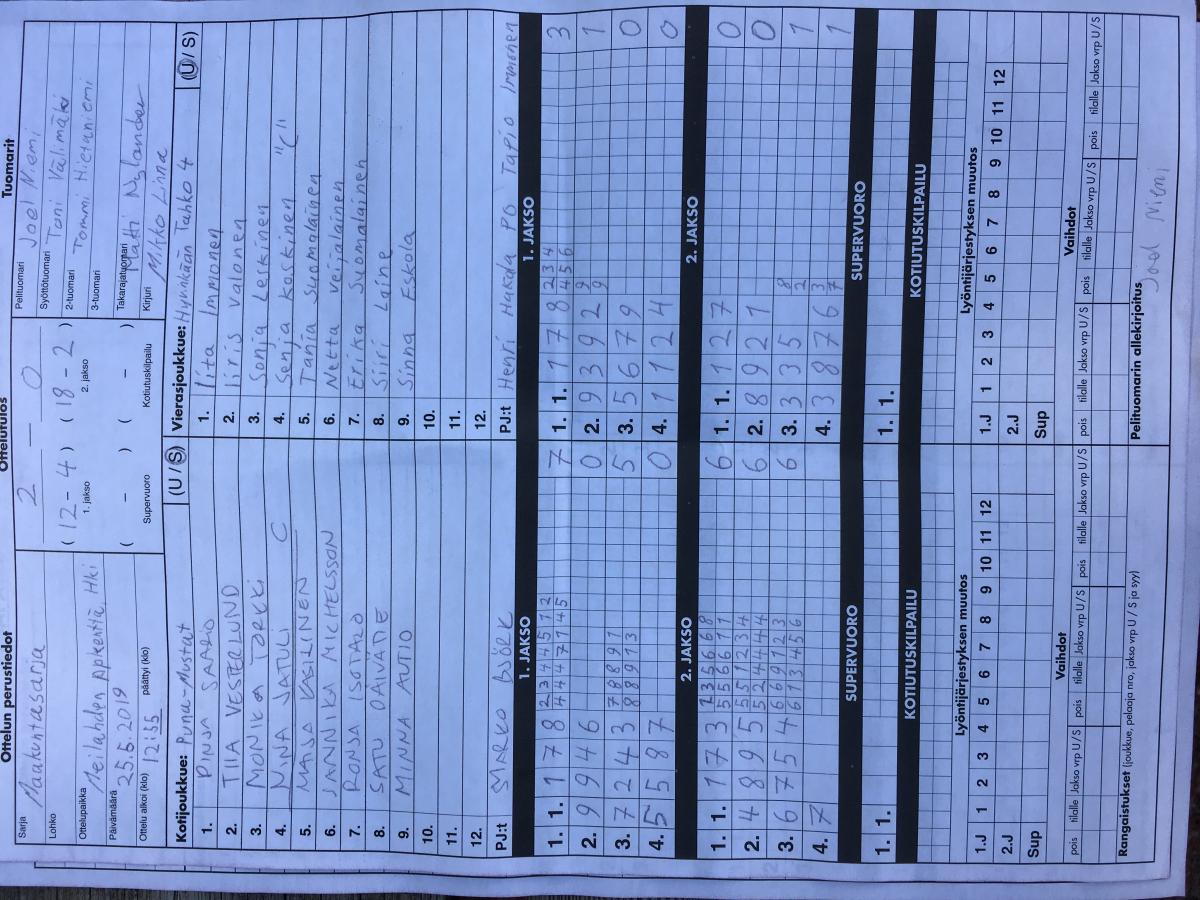 Ottelun perustiedot
Sarja Maakuntasarja
Lohko
Ottelupaikka Meilahden ppkenttä, Hki
Päivämäärä 25.5.2019
Ottelu alkoi (klo) 12:55 päättyi (klo)
Ottelutulos
2 — 0
( 12 - 4 ) ( 18 - 2 )
1. jakso 2. jakso
( - ) ( - )
Supervuoro Kotiutuskilpailu
Tuomarit
Pelituomari Joel Niemi
Syöttötuomari Toni Välimäki
2-tuomari Tommi Hietaniemi
3-tuomari
Takarajatuomari Matti Nylander
Kirjuri Mikko Linna
Kotijoukkue: Puna-Mustat (U / S)
1. PINJA SAARIO
2. TIIA VESTERLUND
3. MONIKA TORKKI
4. NINA JATULI C
5. MAIJA KASILINEN
6. JANNIKA MICHELSSON
7. RONJA ISOTALO
8. SATU OAIVADE
9. MINNA AUTIO
10.
11.
12.
PJ:t MARKO BJÖRK
Vierasjoukkue: Hyvinkään Tahko 4 (U / S)
1. Iita Immonen
2. Iiris Valonen
3. Sonja Leskinen
4. Senja Koskinen "C"
5. Tanja Suomalainen
6. Netta Veijalainen
7. Erika Suomalainen
8. Siiri Laine
9. Sinna Eskola
10.
11.
12.
PJ:t Henri Hakala PÖ Tapio Immonen
1. JAKSO
1. 1. 1 7 8 2 3 4 4 4 5 1 2 7
4 4 4 4 7 1 4 5
2. 9 9 4 6 0
3. 7 2 4 3 7 8 8 9 1 5
8 8 9 1 3
4. 5 5 8 7 0
1. JAKSO
1. 1. 1 7 8 2 3 4 3
4 5 6
2. 9 3 9 2 9 1
9
3. 5 6 7 9 0
4. 1 1 2 4 0
2. JAKSO
1. 1. 1 7 3 1 3 5 6 6 8 6
5 5 6 6 1 1
2. 4 8 9 5 5 5 1 2 3 4 6
5 2 4 4 4 4
3. 6 7 5 4 6 6 9 1 2 3 6
6 1 3 4 5 6
4. 7
2. JAKSO
1. 1. 1 2 7 0
2. 8 9 2 1 0
3. 3 3 5 8 1
2
4. 3 8 7 6 3 1
7
SUPERVUORO
1. 1.
SUPERVUORO
1. 1.
KOTIUTUSKILPAILU
KOTIUTUSKILPAILU
Lyöntijärjestyksen muutos
1.J 1 2 3 4 5 6 7 8 9 10 11 12
2.J
Sup
Lyöntijärjestyksen muutos
1.J 1 2 3 4 5 6 7 8 9 10 11 12
2.J
Sup
Vaihdot
pois tilalle Jakso vrp U / S pois tilalle Jakso vrp U / S pois tilalle Jakso vrp U / S
Vaihdot
pois tilalle Jakso vrp U / S pois tilalle Jakso vrp U / S pois tilalle Jakso vrp U / S
Rangaistukset (joukkue, pelaaja nro, jakso vrp U / S ja syy)
Pelituomarin allekirjoitus
Joel Niemi